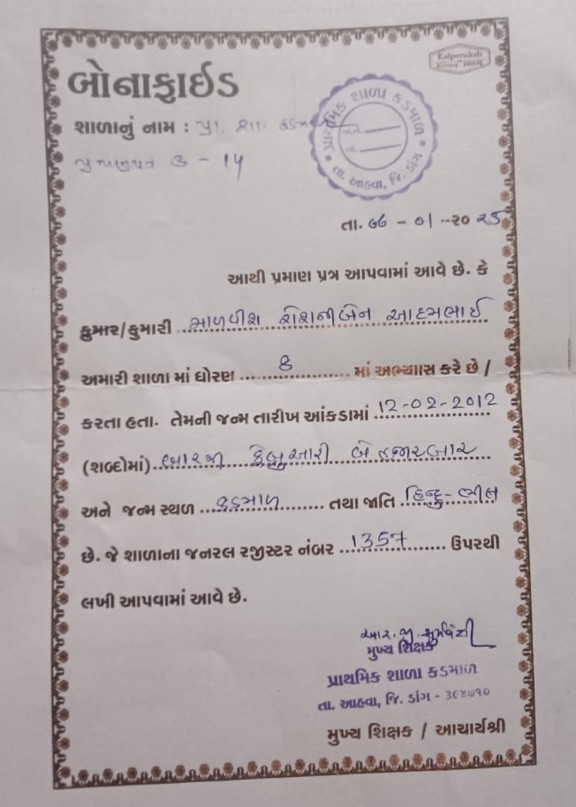 બોનાફાઈડ
Kalpvruksh
શાળાનું નામ : પ્રા. શા. કડમાળ
પ્રમાણપત્ર - 14
પ્રાથમિક શાળા કડમાળ
તા. આહવા, જિ. ડાંગ
તા. - 01 - 2025
આથી પ્રમાણ પત્ર આપવામાં આવે છે. કે
કુમાર/કુમારી માળવીશ રોશનીબેન
અમારી શાળા માં ધોરણ 8 માં અભ્યાસ કરે છે /
કરતા હતા. તેમની જન્મ તારીખ આંકડામાં 12-02-2012
(શબ્દોમાં) બારમી ફેબ્રુઆરી બે હજાર બાર
અને જન્મ સ્થળ કડમાળ તથા જાતિ હિન્દુ - ભીલ
છે. જે શાળાના જનરલ રજીસ્ટર નંબર 1357 ઉપરથી
લખી આપવામાં આવે છે.
આર. જી. સુર્યવંશી
મુખ્ય શિક્ષક
પ્રાથમિક શાળા કડમાળ
તા. આહવા, જિ. ડાંગ - ૩૯૪૭૧૦
મુખ્ય શિક્ષક / આચાર્યશ્રી